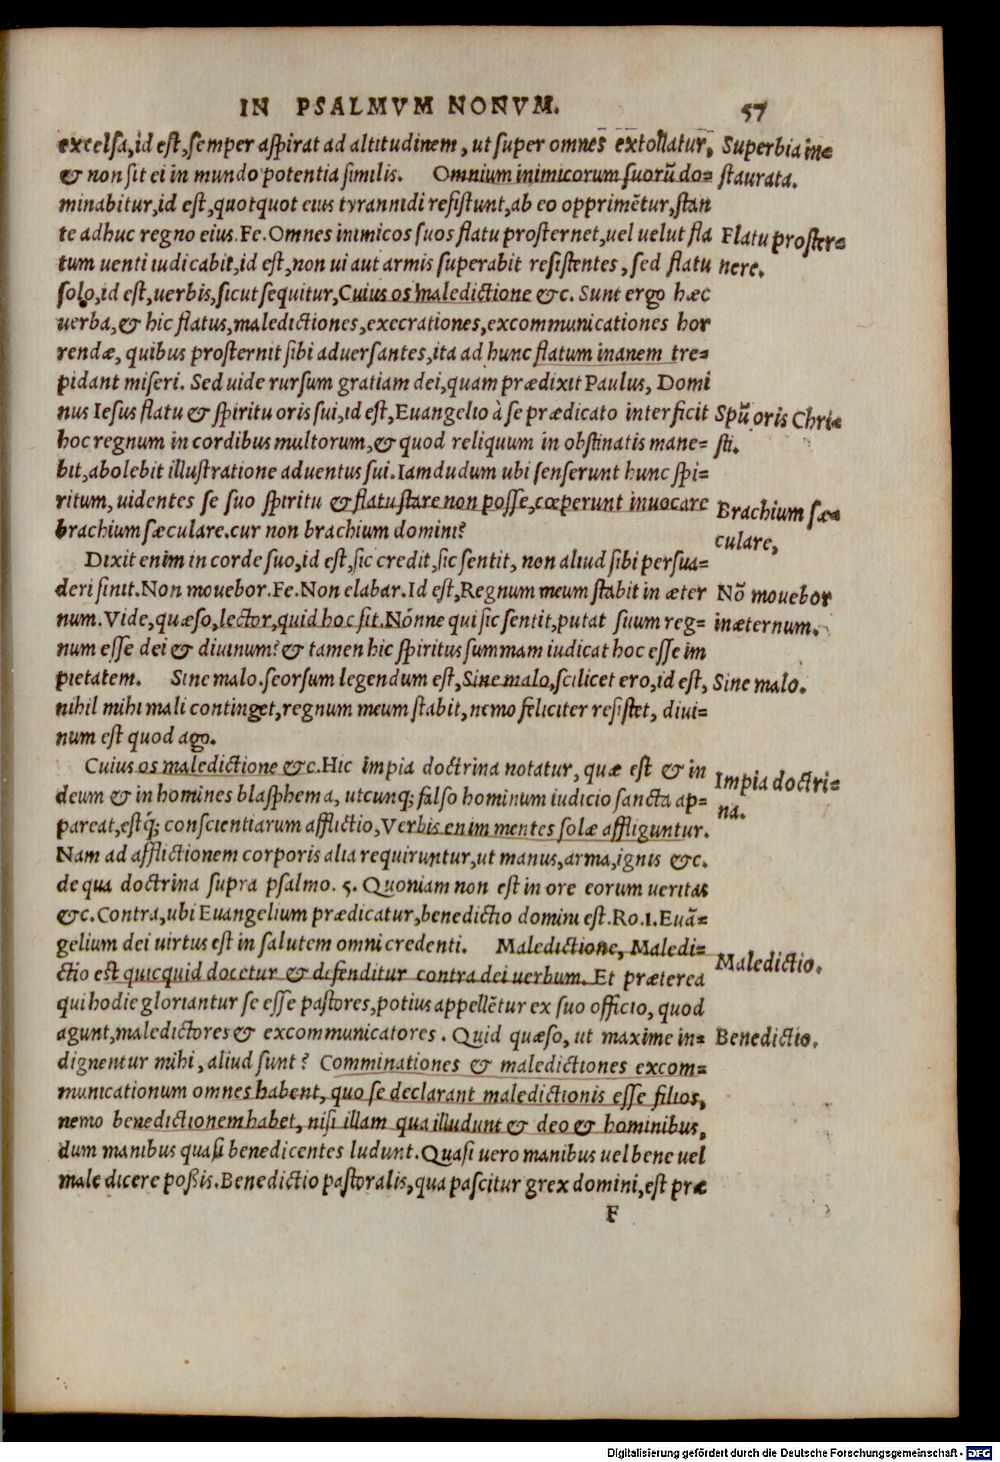 IN PSALMVM NONVM. 57
excelsa,id est,semper aspirat ad altitudinem, ut super omnes extollatur,
& non sit ei in mundo potentia similis. Omnium inimicorum suorũ do=
minabitur,id est,quotquot eius tyrannidi resistunt,ab eo opprimẽtur,stan
te adhuc regno eius.Fe.Omnes inimicos suos flatu prosternet,uel uelut fla
tum uenti iudicabit,id est,non ui aut armis superabit resistentes, sed flatu
solo,id est,uerbis,sicut sequitur,Cuius os maledictione &c. Sunt ergo hæc
uerba,& hic flatus,maledictiones,execrationes,excommunicationes hor
rendæ, quibus prosternit sibi aduersantes,ita ad hunc flatum inanem tre=
pidant miseri. Sed uide rursum gratiam dei,quam prædixit Paulus, Domi
nus Iesus flatu & spiritu oris sui,id est,Euangelio à se prædicato interficit
hoc regnum in cordibus multorum,& quod reliquum in obstinatis mane=
bit,abolebit illustratione aduentus sui.Iamdudum ubi senserunt hunc spi=
ritum, uidentes se suo spiritu & flatu stare non posse,cœperunt inuocare
brachium sæculare.cur non brachium domini?
Dixit enim in corde suo,id est,sic credit,sic sentit, non aliud sibi persua=
deri sinit.Non mouebor.Fe.Non elabar.Id est,Regnum meum stabit in æter
num.Vide,quæso,lector,quid hoc sit.Nónne qui sic sentit,putat suum reg=
num esse dei & diuinum?& tamen hic spiritus summam iudicat hoc esse im
pietatem. Sine malo.seorsum legendum est,Sine malo,scilicet ero,id est,
nihil mihi mali continget,regnum meum stabit,nemo feliciter resistet, diui=
num est quod ago.
Cuius os maledictione &c.Hic impia doctrina notatur, quæ est & in
deum & in homines blasphema, utcunq; falso hominum iudicio sancta ap=
pareat,estq́; conscientiarum afflictio,Verbis enim mentes solæ affliguntur.
Nam ad afflictionem corporis alia requiruntur,ut manus,arma,ignis &c.
de qua doctrina supra psalmo. 5. Quoniam non est in ore eorum ueritas
&c.Contra,ubi Euangelium prædicatur,benedictio domini est.Ro.1.Euã=
gelium dei uirtus est in salutem omni credenti. Maledictione, Maledi=
ctio est quicquid docetur & defenditur contra dei uerbum. Et præterea
qui hodie gloriantur se esse pastores,potius appellẽtur ex suo officio, quod
agunt,maledictores & excommunicatores. Quid quæso, ut maxime in=
dignentur mihi, aliud sunt? Comminationes & maledictiones excom=
municationum omnes habent, quo se declarant maledictionis esse filios,
nemo benedictionem habet, nisi illam qua illudunt & deo & hominibus,
dum manibus quasi benedicentes ludunt.Quasi uero manibus uel bene uel
male dicere poßis.Benedictio pastoralis,qua pascitur grex domini,est præ
F
Superbia in=
staurata.
Flatu proster=
nere.
Spũ oris Chri=
sti.
Brachium sæ=
culare,
Nõ mouebor
in æternum.
Sine malo.
Impia doctri=
na.
Maledictio.
Benedictio.
Digitalisierung gefördert durch die Deutsche Forschungsgemeinschaft - DFG